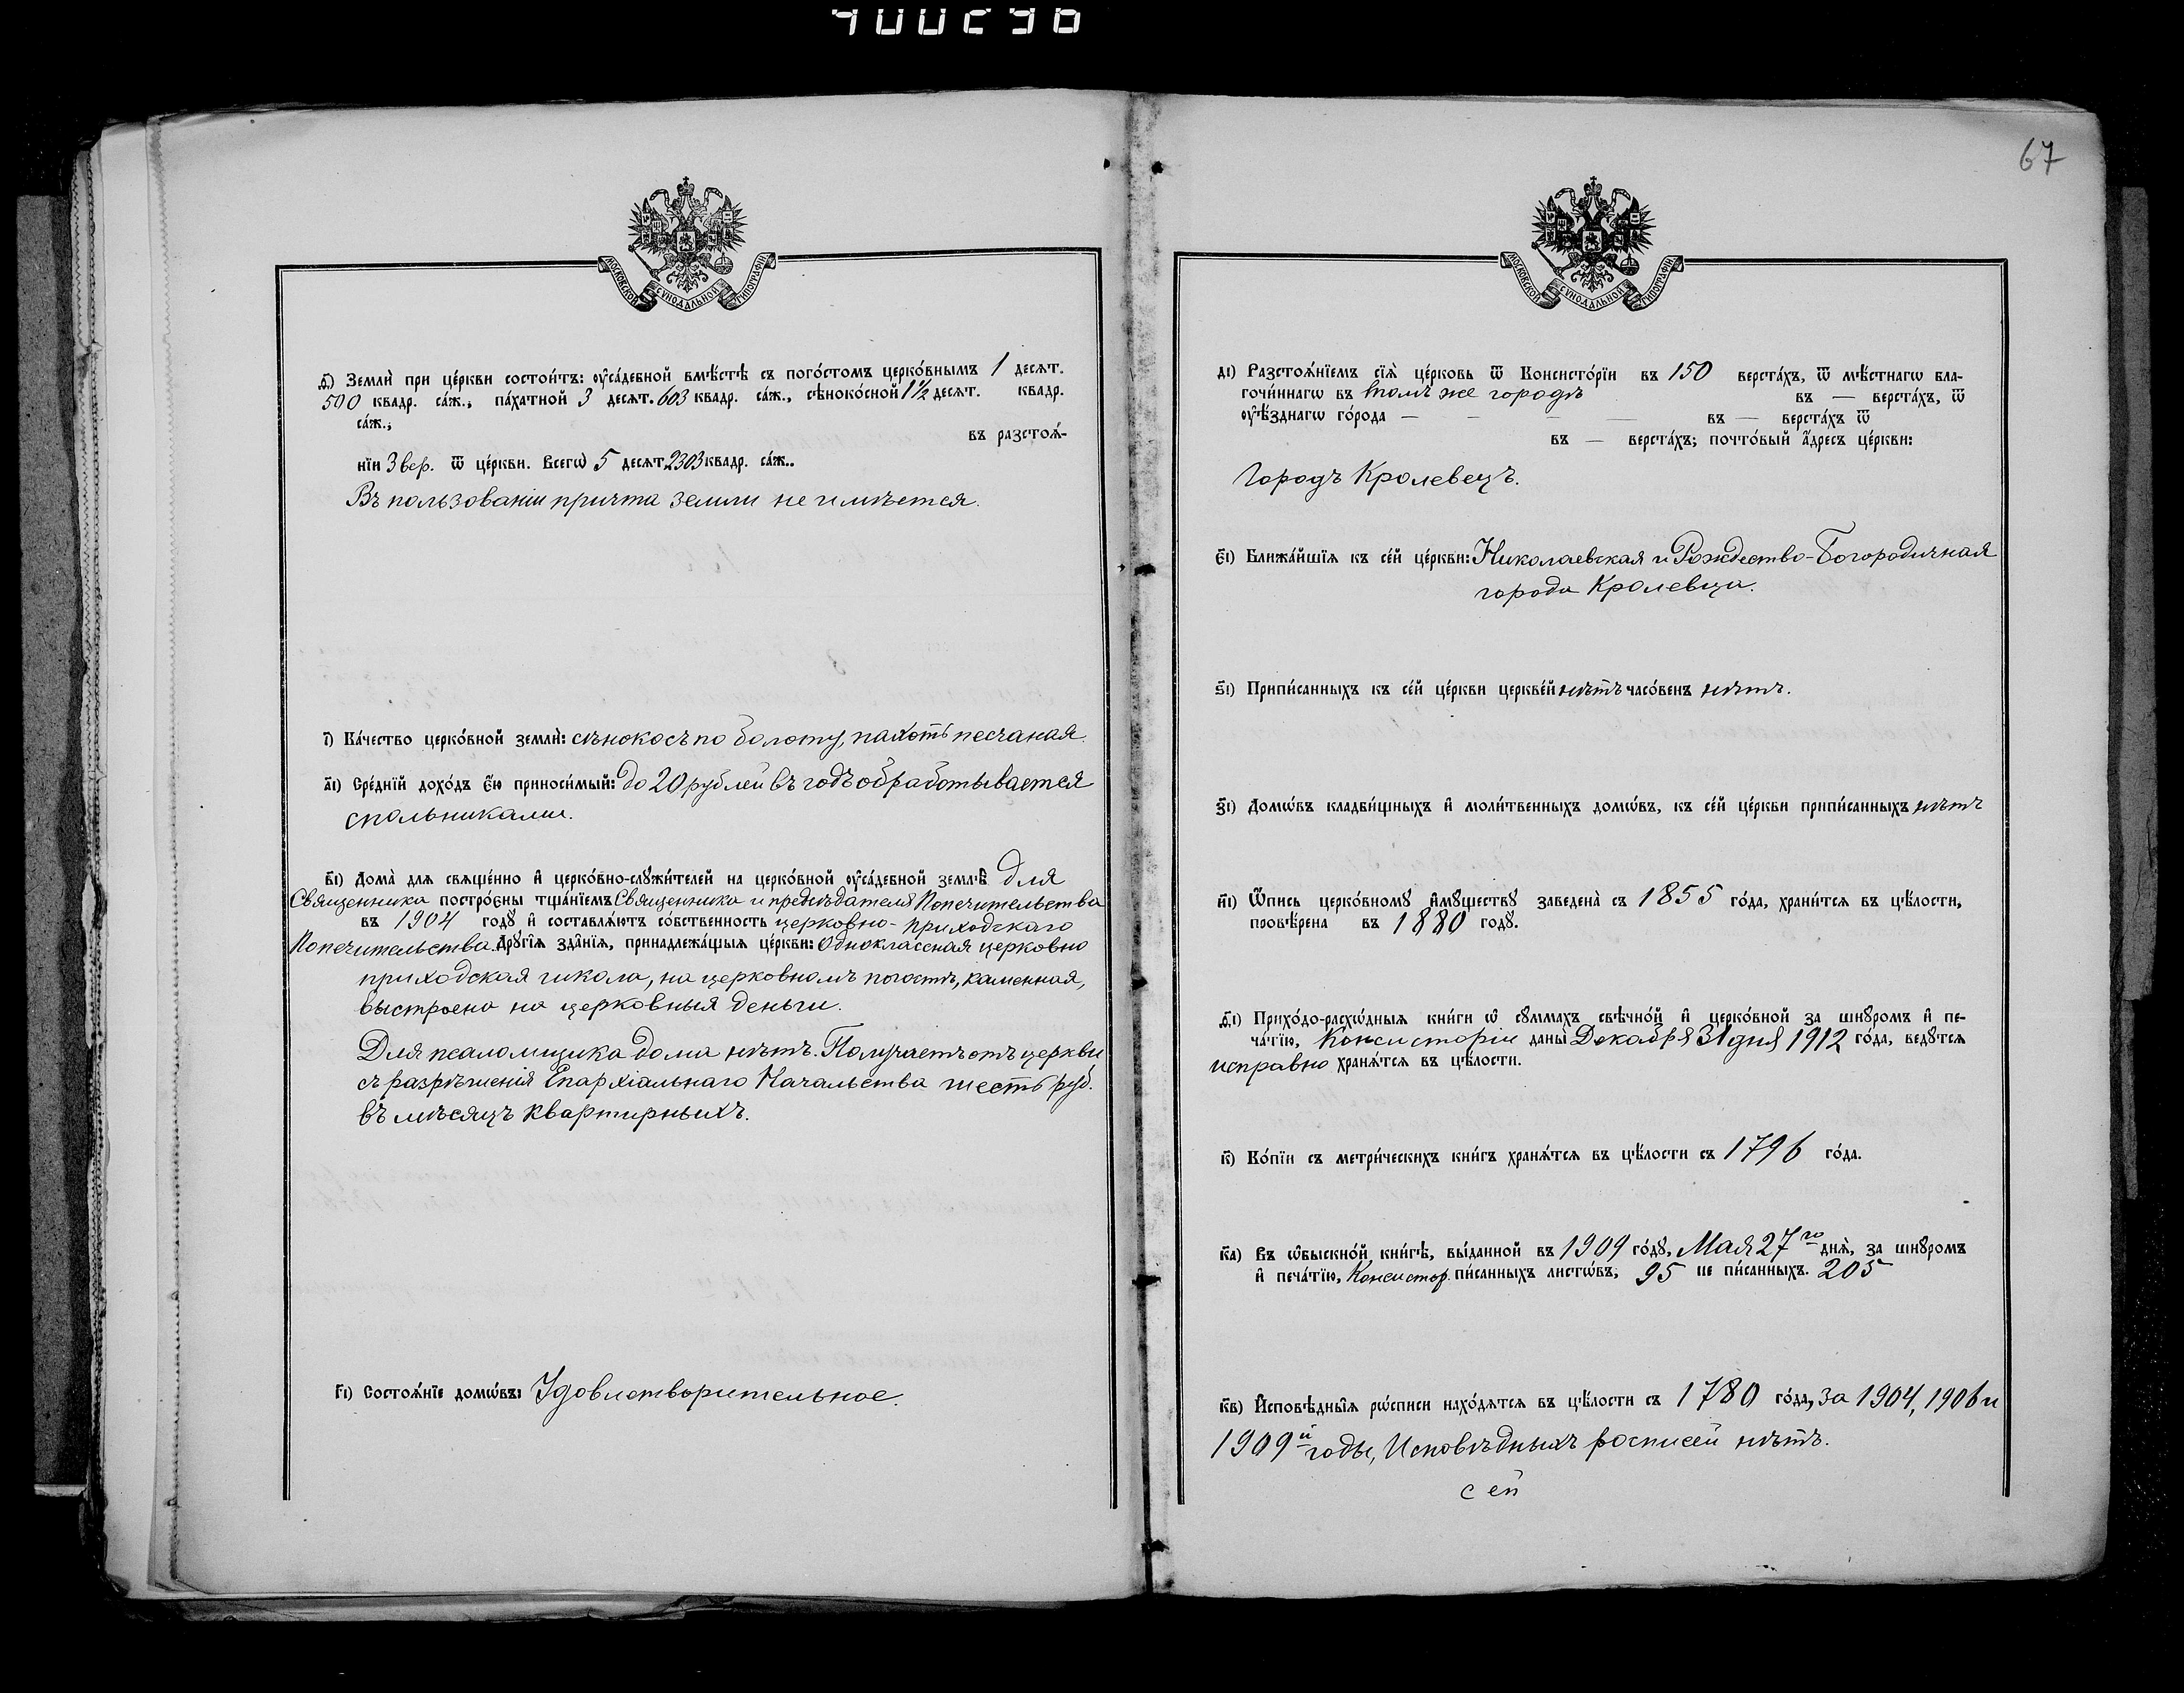 67
МОСКОВСКОЙ СѴНОДАЛЬНОЙ ТИПОГРАФІИ
ѳ҃) Землѝ при це́ркви состои́тъ: ᲂу҆са́дебной вмѣ́стѣ съ пого́стомъ церко́внымъ 1 десѧт.
500 квадр. са́ж., па́хатной 3 десѧт. 603 квадр. са́ж., сѣноко́сной 1½ десѧт. квадр.
са́ж.,
въ разстоѧ́-
нїи 3 вер. ѿ це́ркви. Всегѡ̀ 5 десѧт. 2303 квадр. са́ж..
Въ пользованіи причта земли не имѣется.
і҃) Ка́чество церко́вной землѝ: сѣнокосъ по болоту, пахоть песчаная.
а҃і) Сре́днїй дохо́дъ є҆́ю приноси́мый: до 20 рублей въ годъ обработывается
спольниками.
в҃і) Дома̀ для свѧще́нно и҆ церко́вно-слꙋжи́телей на церко́вной ᲂу҆са́дебной землѣ̀ для
Священника постро́єны тща́нїемъ Священника и предсѣдателя Попечительства
въ 1904 годꙋ̀ и҆ составлѧ́ютъ со́бственность церковно-приходскаго
Попечительства. Дрꙋгі̑ѧ зда̑нїѧ, принадлежа́щыѧ це́ркви: Одноклассная церковно
приходская школа, на церковномъ погостѣ, каменная,
выстроена на церковныя деньги.
Для псаломщика дома нѣтъ. Получаетъ отъ церкви
съ разрѣшенія Епархіальнаго Начальства шесть руб.
въ мѣсяцъ квартирныхъ.
г҃і) Состоѧ́нїе домѡ́въ: Удовлетворительное.
МОСКОВСКОЙ СѴНОДАЛЬНОЙ ТИПОГРАФІИ
д҃і) Разстоѧ́нїемъ сїѧ̀ це́рковь ѿ Консисто́рїи въ 150 верста́хъ, ѿ мѣ́стнагѡ бла-
гочи́ннагѡ въ томъ же городѣ въ — верста́хъ, ѿ
ᲂу҆ѣ́зднагѡ го́рода — — — — въ — верста́хъ ѿ
въ — верста́хъ; почто́вый а҆́дресъ це́ркви:
Городъ Кролевецъ.
є҃і) Ближа́йшїѧ къ се́й це́ркви: Николаевская и Рождество-Богородичная
города Кролевца.
ѕ҃і) Припи́санныхъ къ се́й це́ркви церкве́й нѣтъ часо́венъ нѣтъ.
з҃і) Домѡ́въ кладби́щныхъ и҆ моли́твенныхъ домѡ́въ, къ се́й це́ркви припи́санныхъ нѣтъ
и҃і) Ѡ҆́пись церко́вномꙋ и҆мꙋ́ществꙋ заведена̀ съ 1855 го́да, храни́тсѧ въ цѣ́лости,
провѣ́рена въ 1880 годꙋ̀.
ѳ҃і) Прихо́до-расхѡ́дныѧ кни́ги ѡ҆ сꙋ́ммахъ свѣчно́й и҆ церко́вной за шнꙋро́мъ и҆ пе-
ча́тїю, Консисторіи даны̀ Декабря 31 дня 1912 го́да, ведꙋ́тсѧ
исправно хранѧ́тсѧ въ цѣ́лости.
к҃) Ко́пїи съ метри́ческихъ кни́гъ хранѧ́тсѧ въ цѣ́лости съ 1796 го́да.
к҃а) Въ ѡ҆быскно́й кни́гѣ, вы́данной въ 1909 го́дꙋ, Мая 27го днѧ̀, за шнꙋро́мъ
и҆ печа́тїю, Консистор. пи́санныхъ листѡ́въ, 95 не пи́санныхъ. 205
к҃в) И҆сповѣ́дныѧ рѡ́списи нахо́дѧтсѧ въ цѣ́лости съ 1780 го́да, за 1904, 1906 и
1909й годы, Исповѣдныхъ росписей нѣтъ.
сей